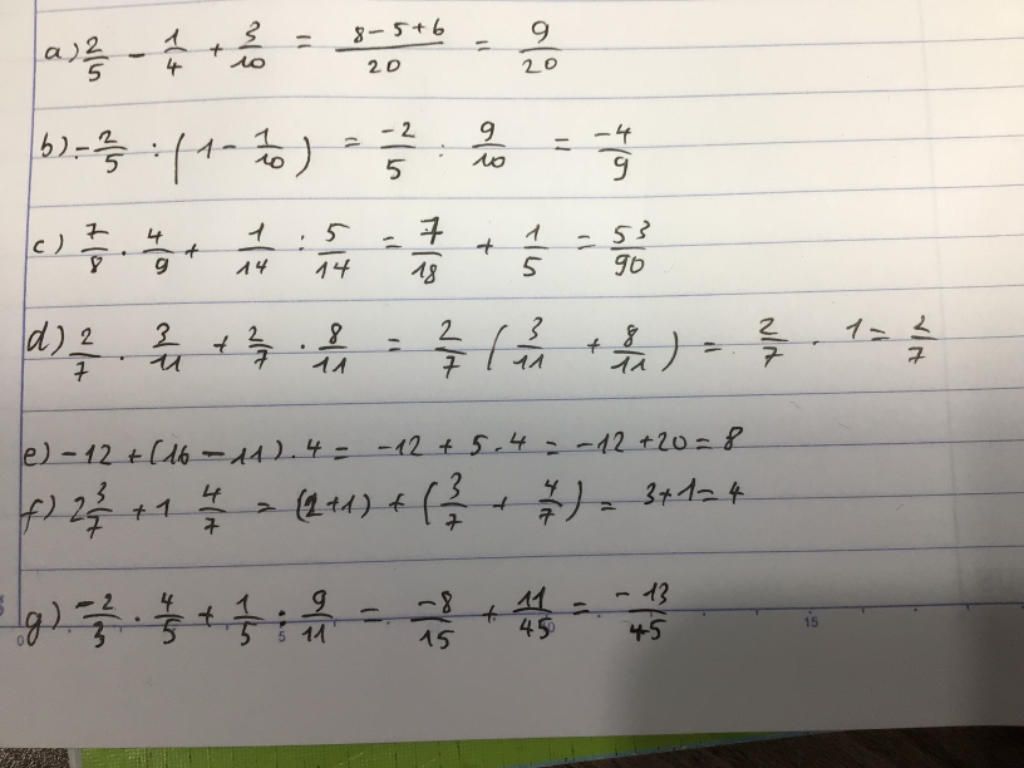 a) 2/5 - 1/4 + 3/10 = (8-5+6)/20 = 9/20
b) -2/5 : (1 - 1/10) = -2/5 : 9/10 = -4/9
c) 7/8 . 4/9 + 1/14 : 5/14 = 7/18 + 1/5 = 53/90
d) 2/7 . 3/11 + 2/7 . 8/11 = 2/7 (3/11 + 8/11) = 2/7 . 1 = 2/7
e) -12 + (16 - 11) . 4 = -12 + 5 . 4 = -12 + 20 = 8
f) 2 3/7 + 1 4/7 = (2+1) + (3/7 + 4/7) = 3+1 = 4
g) -2/3 . 4/5 + 1/5 : 9/11 = -8/15 + 11/45 = -13/45
0 5 10 15